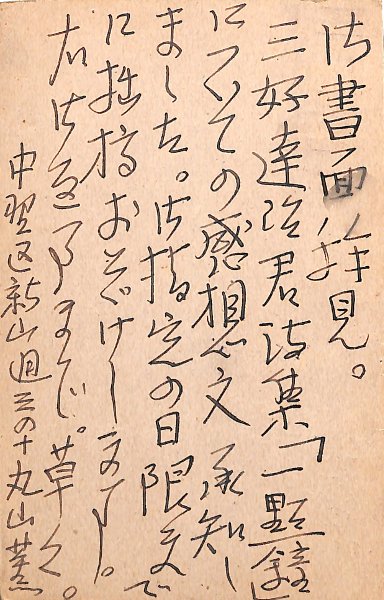 御書面拝見。
三好達治君詩集「一點鐘」
についての感想文承知し
ました。御指定の日限まで
に拙稿おとどけします。
右御返事まで。草々。
中野区新山通三の十丸山薫